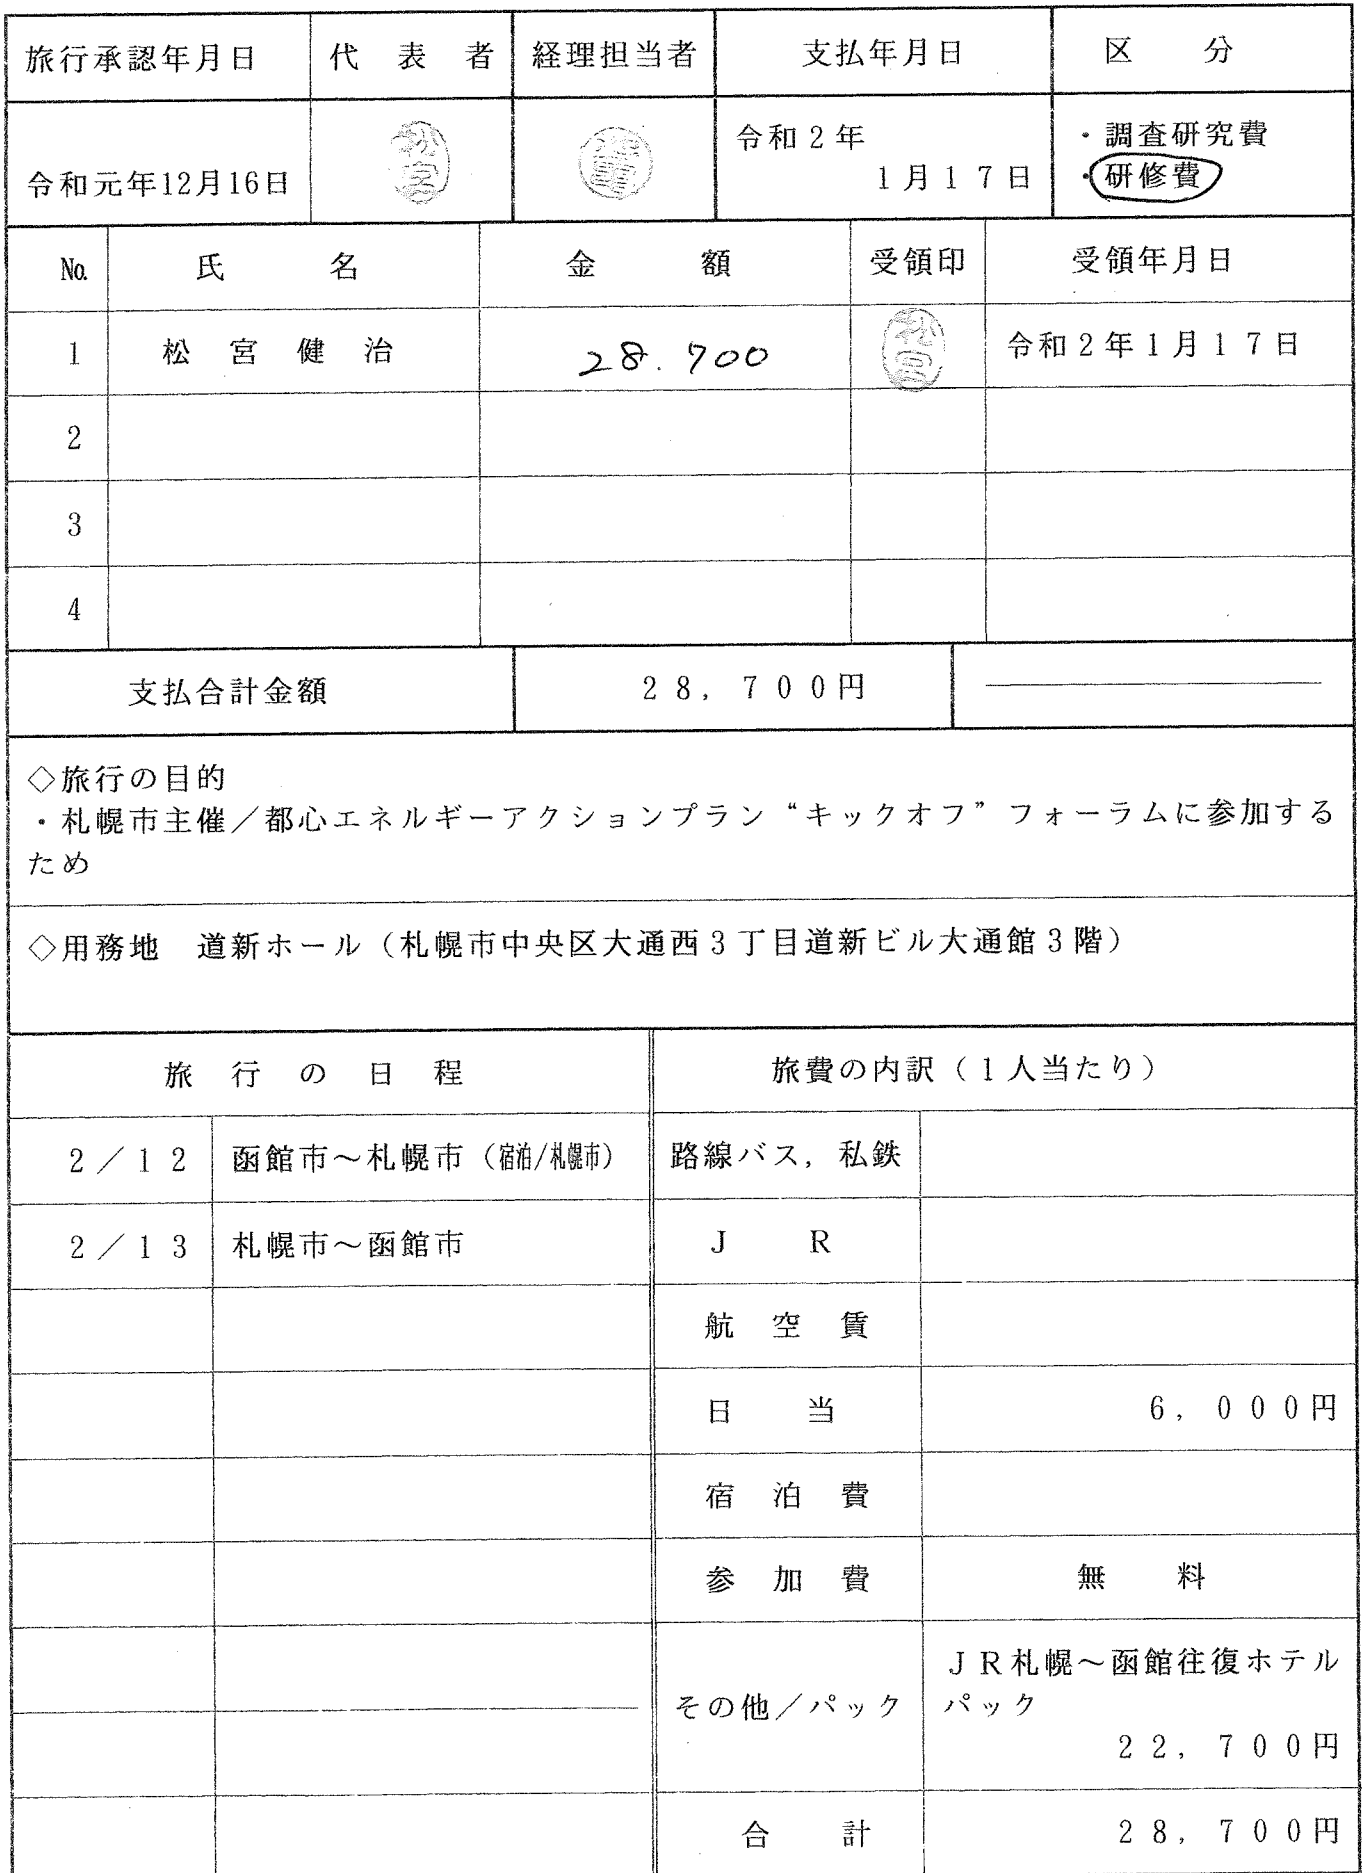 旅行承認年月日 代表者 経理担当者 支払年月日 区分
令和元年12月16日 松宮 令和2年
1月17日
・調査研究費
・研修費
No. 氏名 金額 受領印 受領年月日
1 松宮健治 28.700 松宮 令和2年1月17日
2
3
4
支払合計金額 28,700円
◇旅行の目的
・札幌市主催／都心エネルギーアクションプラン“キックオフ”フォーラムに参加する
ため
◇用務地 道新ホール（札幌市中央区大通西3丁目道新ビル大通館3階）
旅行の日程 旅費の内訳（1人当たり）
2／12 函館市～札幌市（宿泊/札幌市） 路線バス，私鉄
2／13 札幌市～函館市 JR
航空賃
日当 6,000円
宿泊費
参加費 無料
その他／パック JR札幌～函館往復ホテル
パック
22,700円
合計 28,700円